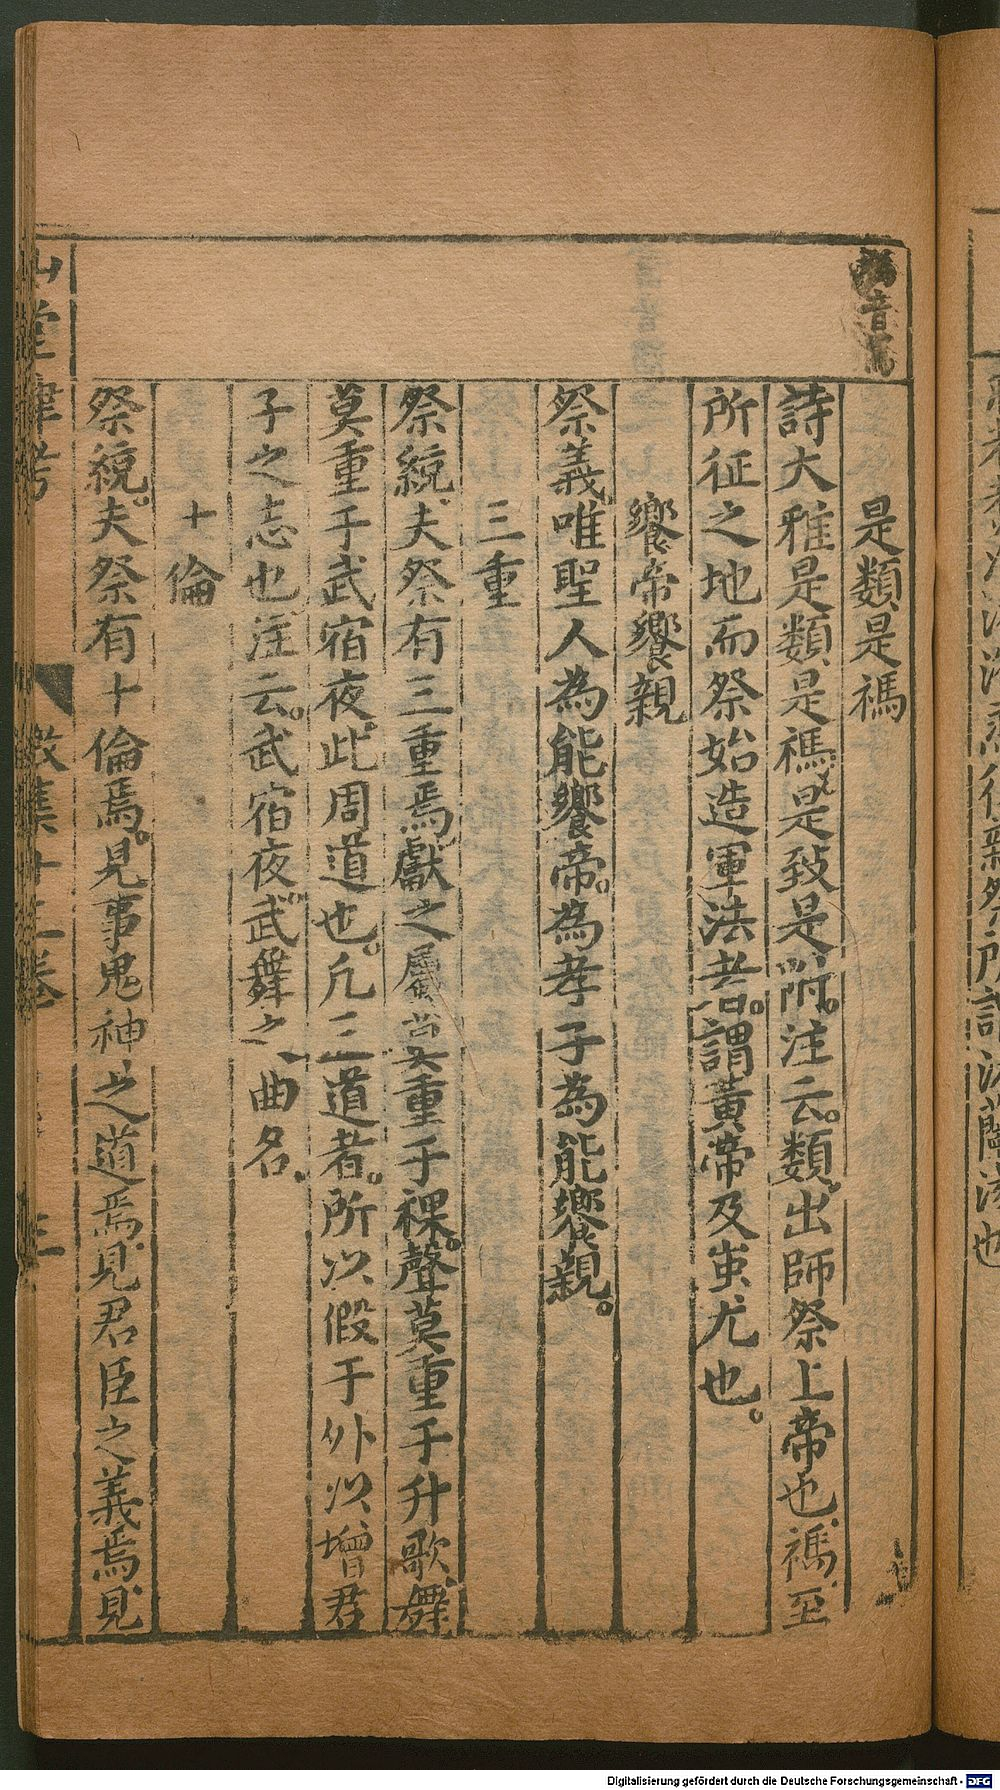 禡音罵
是類是禡
詩大雅是類是禡是致是附注云類出師祭上帝也禡至
所征之地而祭始造軍法者謂黃帝及蚩尤也
饗帝饗親
祭義唯聖人為能饗帝為孝子為能饗親
三重
祭統夫祭有三重焉獻之屬莫重于祼聲莫重于升歌舞
莫重于武宿夜此周道也凡三道者所以假于外以增君
子之志也注云武宿夜武舞之曲名
十倫
祭統夫祭有十倫焉見事鬼神之道焉見君臣之義焉見
山堂肆考 徵集十二卷 三
Digitalisierung gefördert durch die Deutsche Forschungsgemeinschaft - DFG